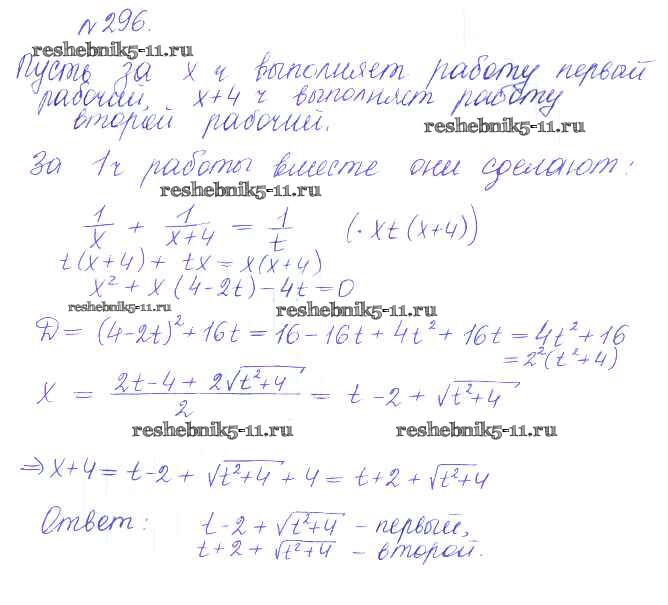 № 296.
reshebnik5-11.ru
Пусть за x ч выполняет работу первый
рабочий, x+4 ч выполняет работу
второй рабочий.
reshebnik5-11.ru
За 1 ч работы вместе они сделают:
reshebnik5-11.ru
1/x + 1/(x+4) = 1/t (· xt(x+4))
t(x+4) + tx = x(x+4)
x² + x(4-2t) - 4t = 0
reshebnik5-11.ru reshebnik5-11.ru
D = (4-2t)² + 16t = 16 - 16t + 4t² + 16t = 4t² + 16
= 2²(t²+4)
x = (2t - 4 + 2√(t²+4))/2 = t - 2 + √(t²+4)
reshebnik5-11.ru reshebnik5-11.ru
⇒ x+4 = t-2 + √(t²+4) + 4 = t+2 + √(t²+4)
Ответ: t-2 + √(t²+4) - первый,
t+2 + √(t²+4) - второй.